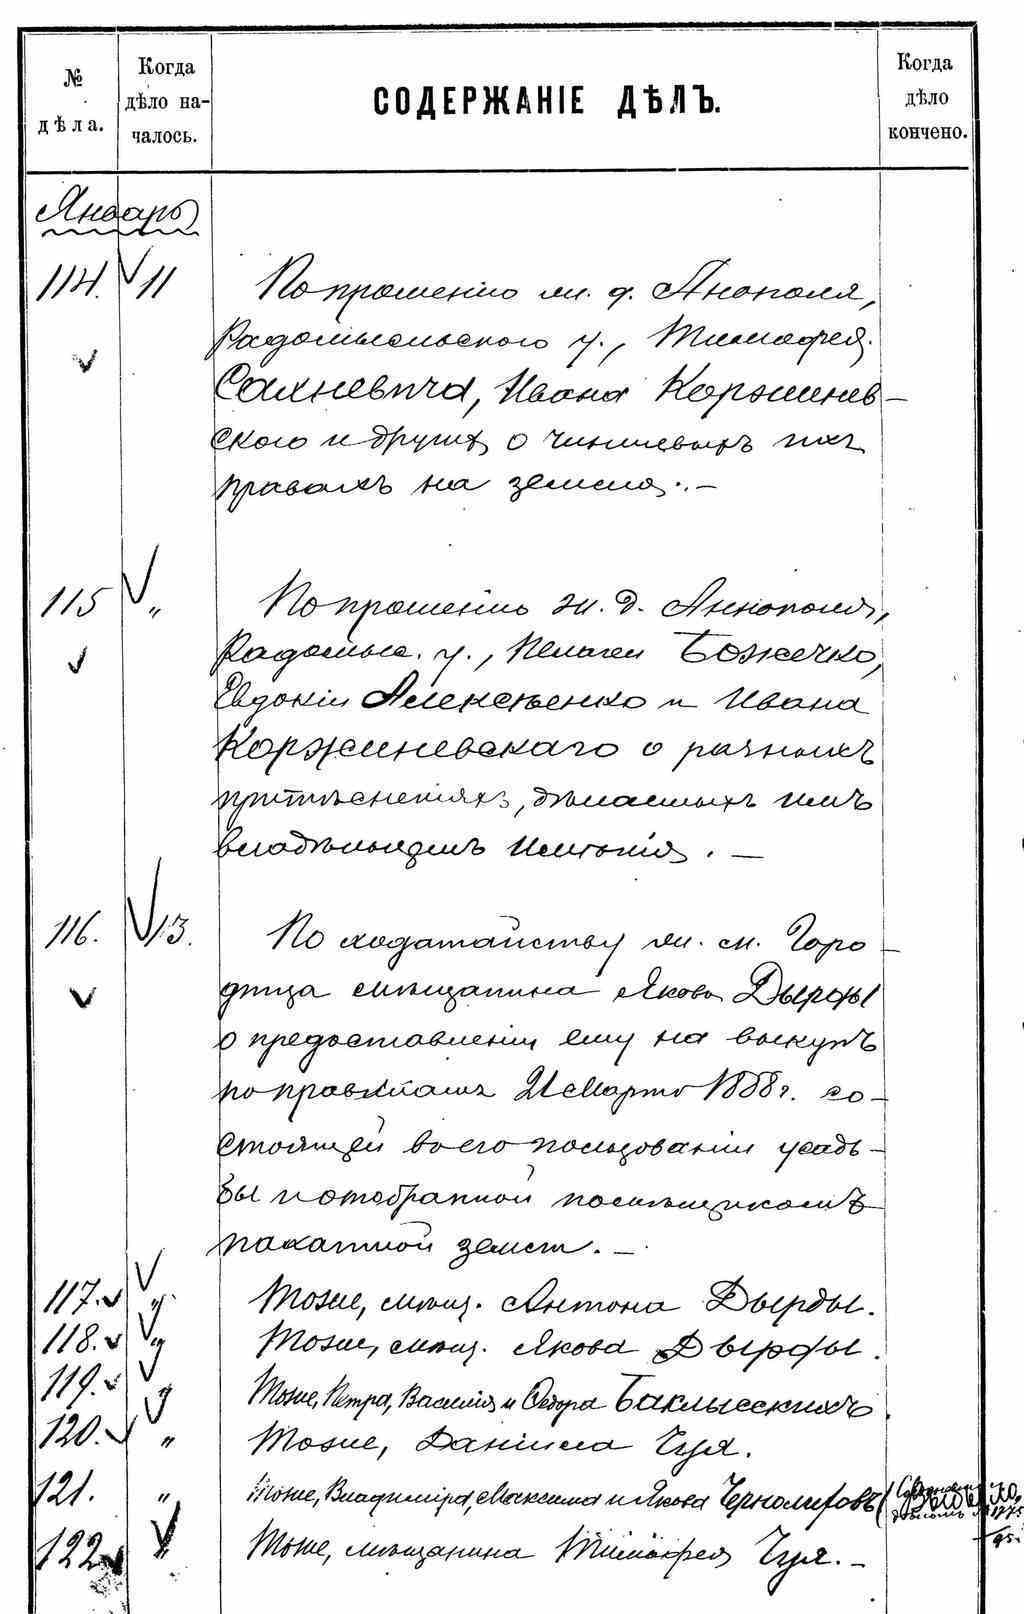 № дѣла.
Когда дѣло на-
чалось.
СОДЕРЖАНІЕ ДѢЛЪ.
Когда дѣло кончено.
Январь
114. 11 По прошенію жи. д. Янополя,
Радомысльского у., Тимофея
Сахневича, Ивана Коржинев-
ского и другихъ о чиншевыхъ ихъ
правахъ на землю. –
115 „ По прошенію жи. д. Аннополя,
Радомысл. у., Пелагеи Божечко,
Евдокіи Алексѣенко и Ивана
Коржиневскаго о разныхъ
притѣсненіяхъ, дѣлаемыхъ имъ
владѣльцемъ имѣнія. –
116. 13. По ходатайству жи. м. Горо-
дища мѣщанина Якова Дырды
о предоставленіи ему на выкупъ
по правиламъ 21 Марта 1888 г. со-
стоящей въ его пользованіи усадь-
бы и отобранной помѣщикомъ
пахатной земли. –
117. „ Тоже, мѣщ. Антона Дырды.
118. „ Тоже, мѣщ. Якова Дырды.
119. „ Тоже, Петра, Василія и Ѳедора Баклысскихъ.
120. „ Тоже, Даніила Чуя.
121. „ Тоже, Владиміра, Максима и Якова Чернолуговъ
122 „ Тоже, мѣщанина Тимофея Чуя. –